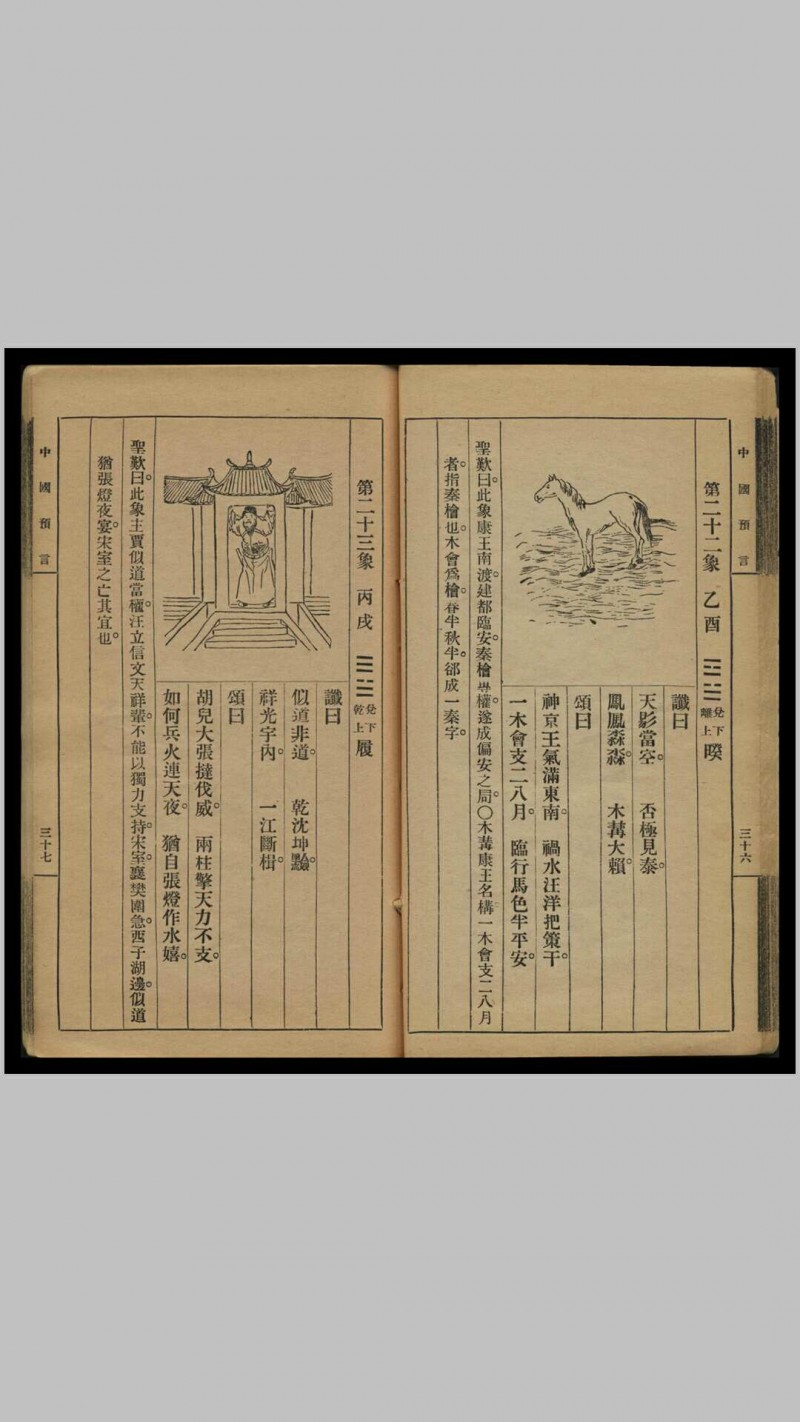 中國預言
三十六
第二十二象 乙酉 兌下離上 睽
讖曰
天影當空。 否極見泰。
鳳鳳淼淼。 木冓大賴。
頌曰
神京王氣滿東南。 禍水汪洋把策干。
一木會支二八月。 臨行馬色半平安。
聖歎曰。此象康王南渡。建都臨安。秦檜專權。遂成偏安之局。〇木冓康王名構一木會支二八月
者。指秦檜也。木會爲檜。春半秋半。郤成一秦字。
第二十三象 丙戌 兌下乾上 履
讖曰
似道非道。 乾沈坤黯。
祥光宇內。 一江斷楫。
頌曰
胡兒大張撻伐威。 兩柱擎天力不支。
如何兵火連天夜。 猶自張燈作水嬉。
聖歎曰。此象主賈似道當權。汪立信文天祥輩。不能以獨力支持宋室。襄樊圍急。西子湖邊。似道
猶張燈夜宴。宋室之亡其宜也。
中國預言
三十七